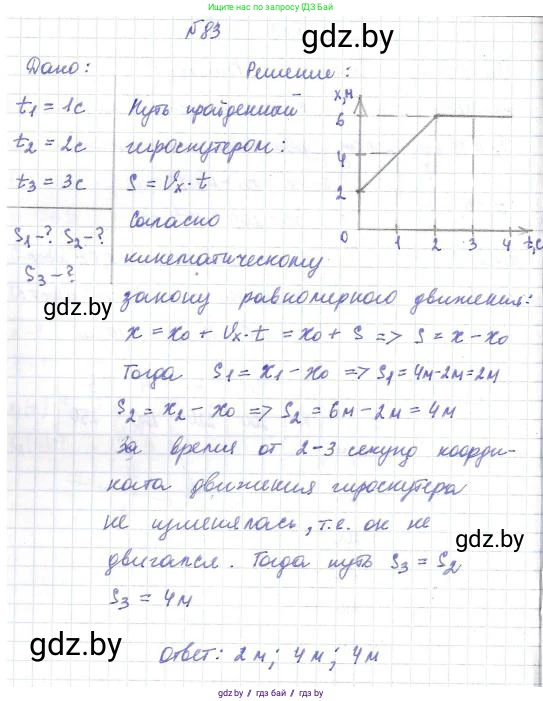 решение по запросу @gdz_by_bot
№83
gdz.by
Дано:
Решение:
t1 = 1с
t2 = 2с
t3 = 3с
S1-? S2-?
S3-?
Путь пройденный
гироскутером:
S = Vx·t
Согласно
кинематическому
x,м
6
4
2
0
1 2 3 4 t,с
gdz.by
закону равномерного движения:
x = x0 + Vx·t = x0 + S => S = x - x0
Тогда S1 = x1 - x0 => S1 = 4м-2м=2м
S2 = x2 - x0 => S2 = 6м - 2м = 4м
За время от 2-3 секунд коорди-
ната движения гироскутера
не изменялась, т.е. он не
gdz.by
двигался. Тогда путь S3 = S2
S3 = 4м
gdz.by
Ответ: 2м; 4м; 4м
gdz.by / гдз бай / gdz.by